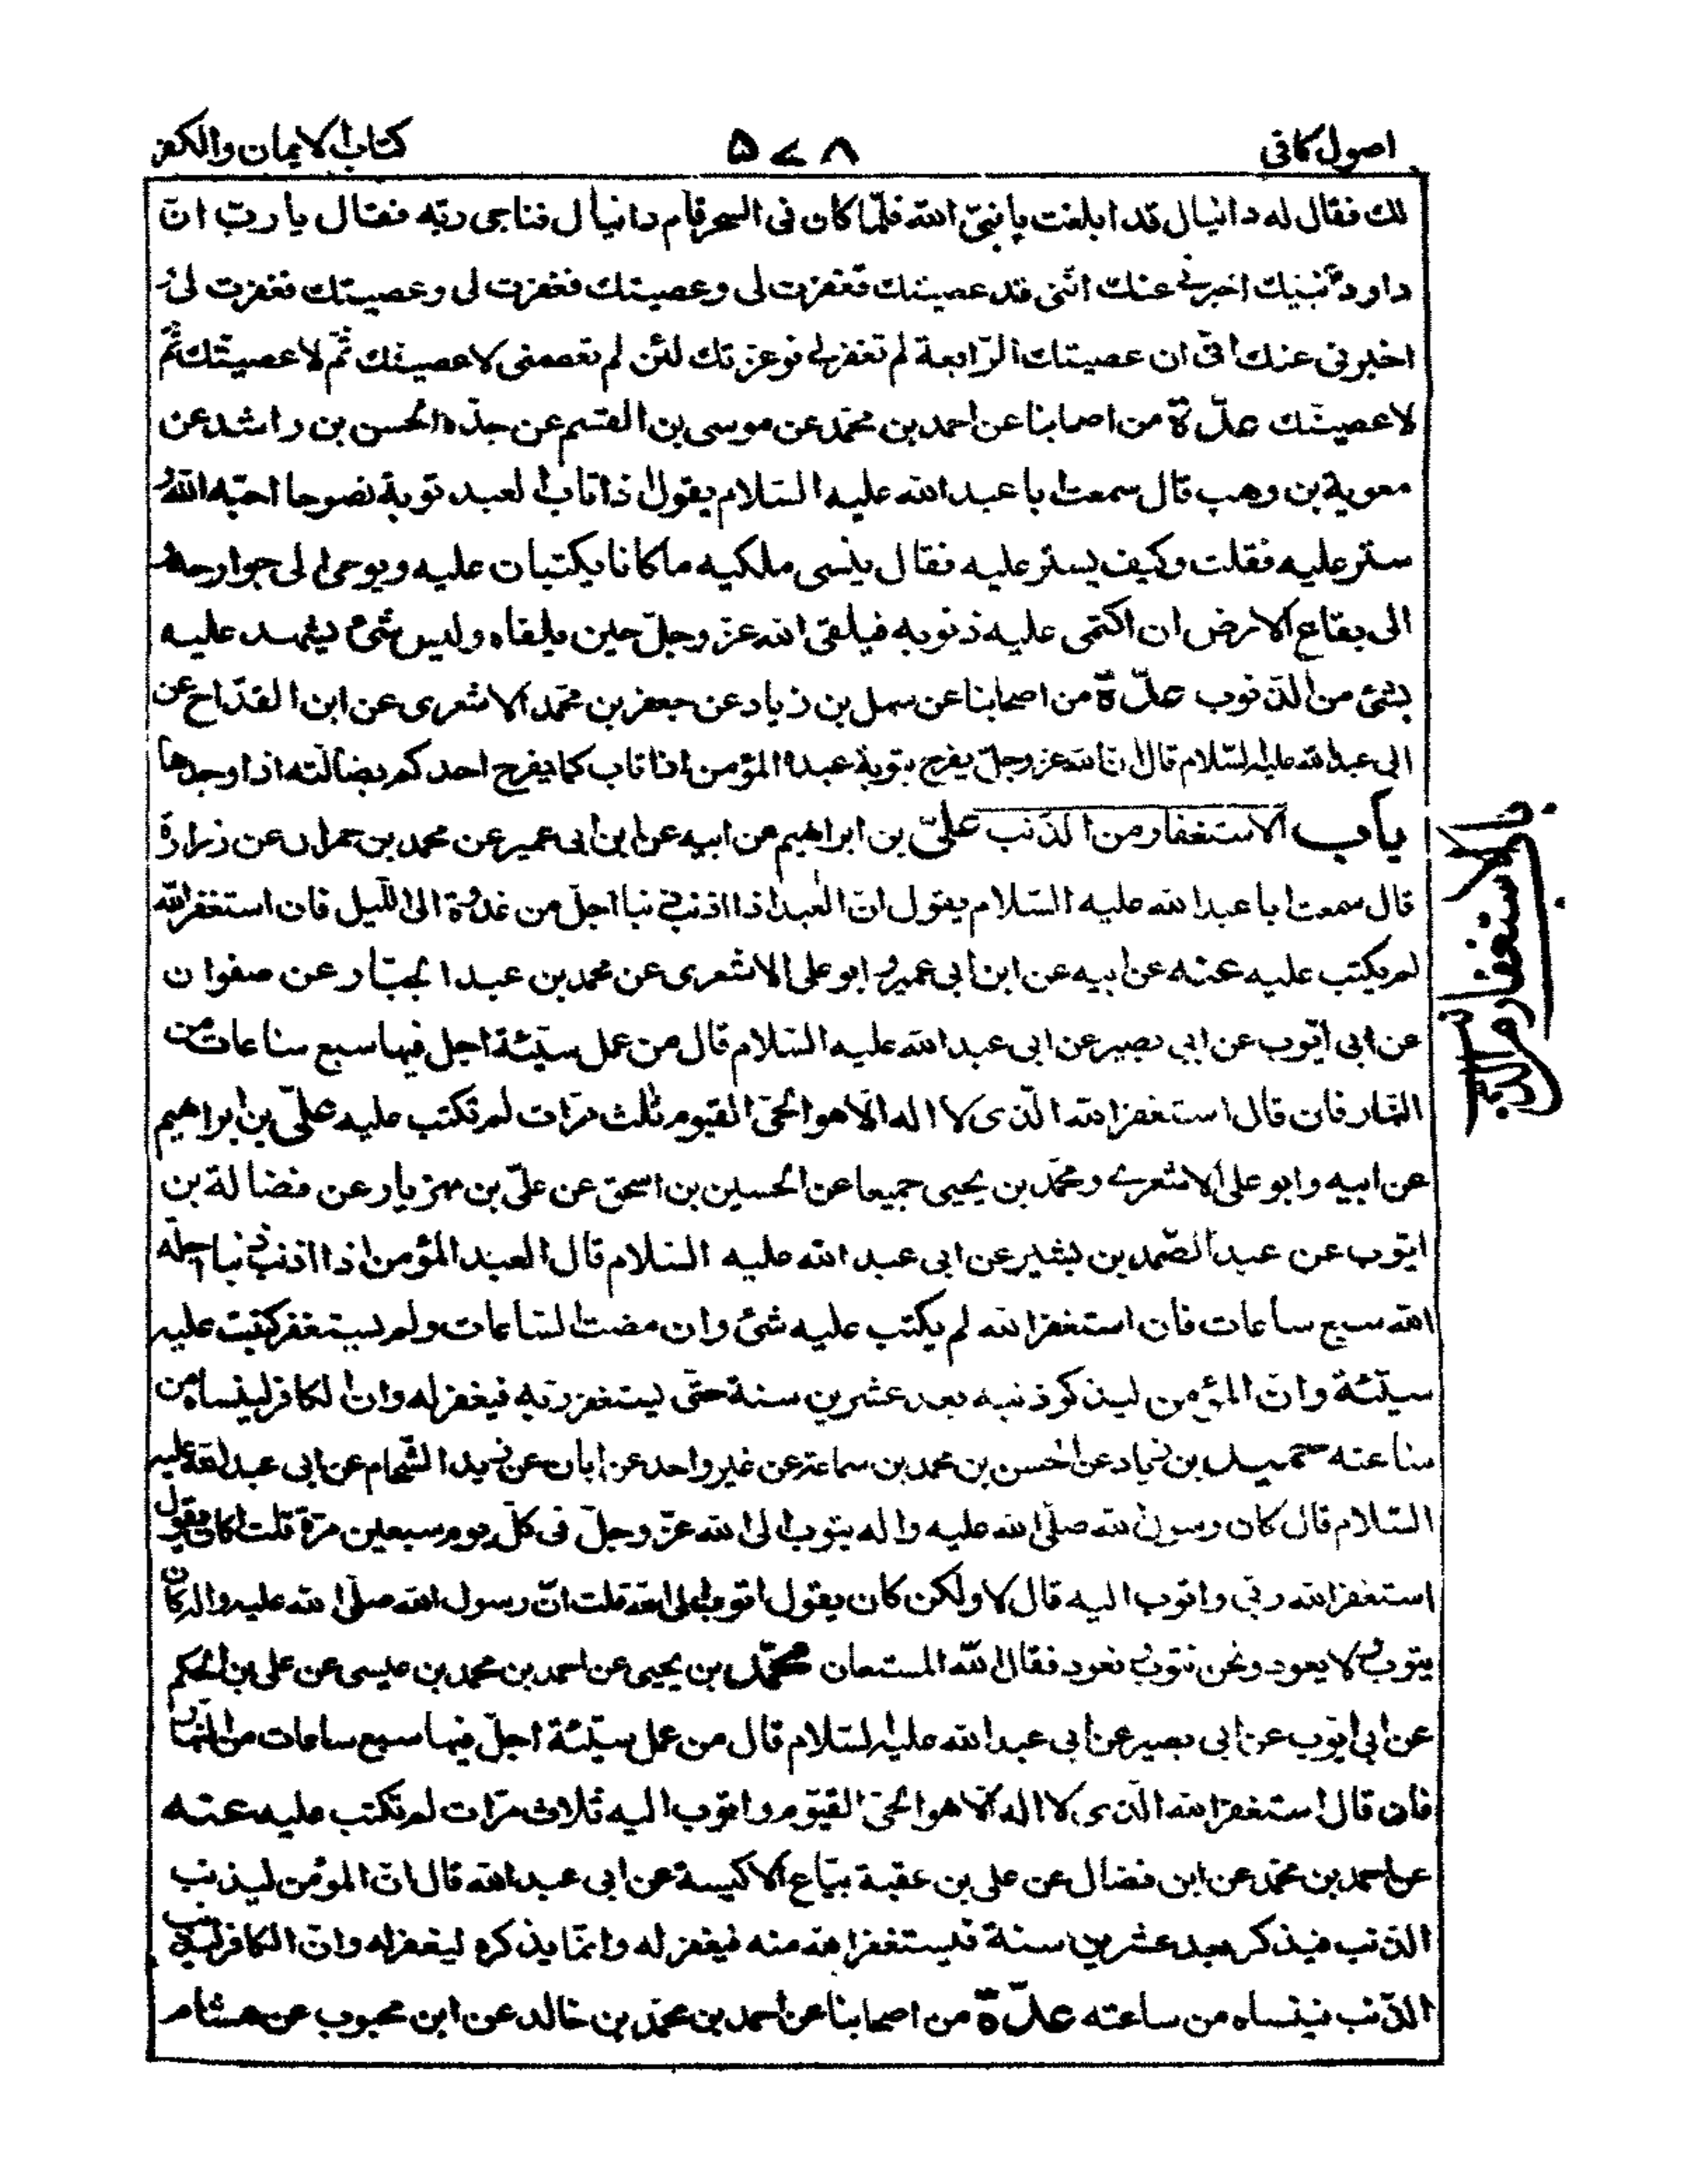 اصول كافى ۵۷۸ كتاب الايمان والكفر
لك فقال له دانيال قد ابلغت يا نبىّ الله فلمّا كان فى السحر قام دانيال فناجى ربّه فقال يا ربّ انّ
داود نبيك اخبرنى عنك انّنى قد عصيتك فغفرت لى وعصيتك فغفرت لى وعصيتك فغفرت لى و
اخبرنى عنك انّى ان عصيتك الرّابعة لم تغفر لى فوعزّتك لئن لم تعصمنى لاعصينّك ثمّ لاعصينّك ثمّ
لاعصينّك عدّة من اصحابنا عن احمد بن محمّد عن موسى بن القسم عن جدّه الحسن بن راشد عن
معوية بن وهب قال سمعت ابا عبد الله عليه السّلام يقول اذا تاب العبد توبة نصوحا احبّه الله و
ستر عليه فقلت وكيف يستر عليه فقال ينسى ملكيه ما كانا يكتبان عليه ويوحى الى جوارحه و
الى بقاع الارض ان اكتمى عليه ذنوبه فيلقى الله عزّ وجلّ حين يلقاه وليس شئ يشهد عليه
بشئ من الذّنوب عدّة من اصحابنا عن سهل بن زياد عن جعفر بن محمّد الاشعرى عن ابن القدّاح عن
ابى عبد الله عليه السّلام قال انّ الله عز وجلّ يفرح بتوبة عبده المؤمن اذا تاب كما يفرح احدكم بضالّته اذا وجدها
باب الاستغفار من الذّنب علىّ بن ابراهيم عن ابيه عن ابن ابى عمير عن محمد بن حمران عن زرارة
قال سمعت ابا عبد الله عليه السّلام يقول انّ العبد اذا اذنب ذنبا اجلّ من غدوة الى اللّيل فان استغفر الله
لم يكتب عليه عنه عن ابيه عن ابن ابى عمير و ابو على الاشعرى عن محمد بن عبد الجبّار عن صفوان
عن ابى ايّوب عن ابى بصير عن ابى عبد الله عليه السّلام قال من عمل سيّئة اجل فيها سبع ساعات من
النّهار فان قال استغفر الله الّذى لا اله الّا هو الحىّ القيوم ثلث مرّات لم تكتب عليه علىّ بن ابراهيم
عن ابيه وابو على الاشعرى ومحمّد بن يحيى جميعا عن الحسين بن اسحق عن علىّ بن مهزيار عن فضالة بن
ايّوب عن عبد الصّمد بن بشير عن ابى عبد الله عليه السّلام قال العبد المؤمن اذا اذنب ذنبا اجله
الله سبع ساعات فان استغفر الله لم يكتب عليه شئ وان مضت السّاعات ولم يستغفر كتبت عليه
سيّئة وانّ المؤمن ليذكر ذنبه بعد عشرين سنة حتّى يستغفر ربّه فيغفر له وانّ الكافر لينساه من
ساعته حميد بن زياد عن الحسن بن محمد بن سماعة عن غير واحد عن ابان عن زيد الشّحام عن ابى عبد الله عليه
السّلام قال كان رسول الله صلّى الله عليه واله يتوب الى الله عزّ وجلّ فى كلّ يوم سبعين مرّة قلت اكان يقول
استغفر الله ربّى واتوب اليه قال لا ولكن كان يقول اتوب الى الله قلت انّ رسول الله صلّى الله عليه واله كان
يتوب ولا يعود ونحن نتوب ونعود فقال الله المستعان محمّد بن يحيى عن احمد بن محمد بن عيسى عن على بن الحكم
عن ابى ايّوب عن ابى بصير عن ابى عبد الله عليه السّلام قال من عمل سيّئة اجلّ فيها سبع ساعات من النّهار
فان قال استغفر الله الّذى لا اله الّا هو الحىّ القيّوم واتوب اليه ثلاث مرّات لم تكتب عليه عنه
عن احمد بن محمّد عن ابن فضال عن على بن عقبة بيّاع الاكيسة عن ابى عبد الله قال انّ المؤمن ليذنب
الذّنب فيذكر بعد عشرين سنة فيستغفر الله منه فيغفر له وانّما يذكره ليغفر له وانّ الكافر ليذنب
الذّنب فينساه من ساعته عدّة من اصحابنا عن احمد بن محمّد بن خالد عن ابن محبوب عن هشام
باب الاستغفار من الذنب